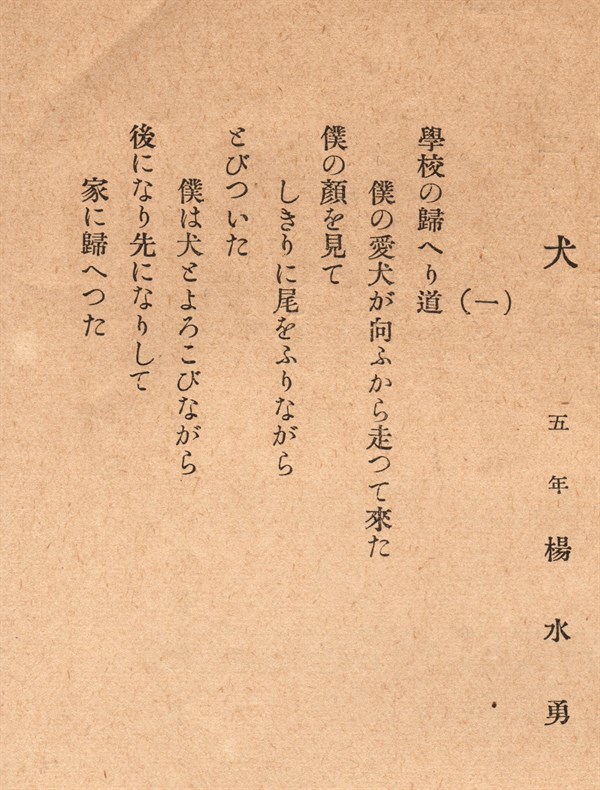 犬 五年 楊水勇
(一)
學校の歸へり道
僕の愛犬が向ふから走つて來た
僕の顔を見て
しきりに尾をふりながら
とびついた
僕は犬とよろこびながら
後になり先になりして
家に歸へつた